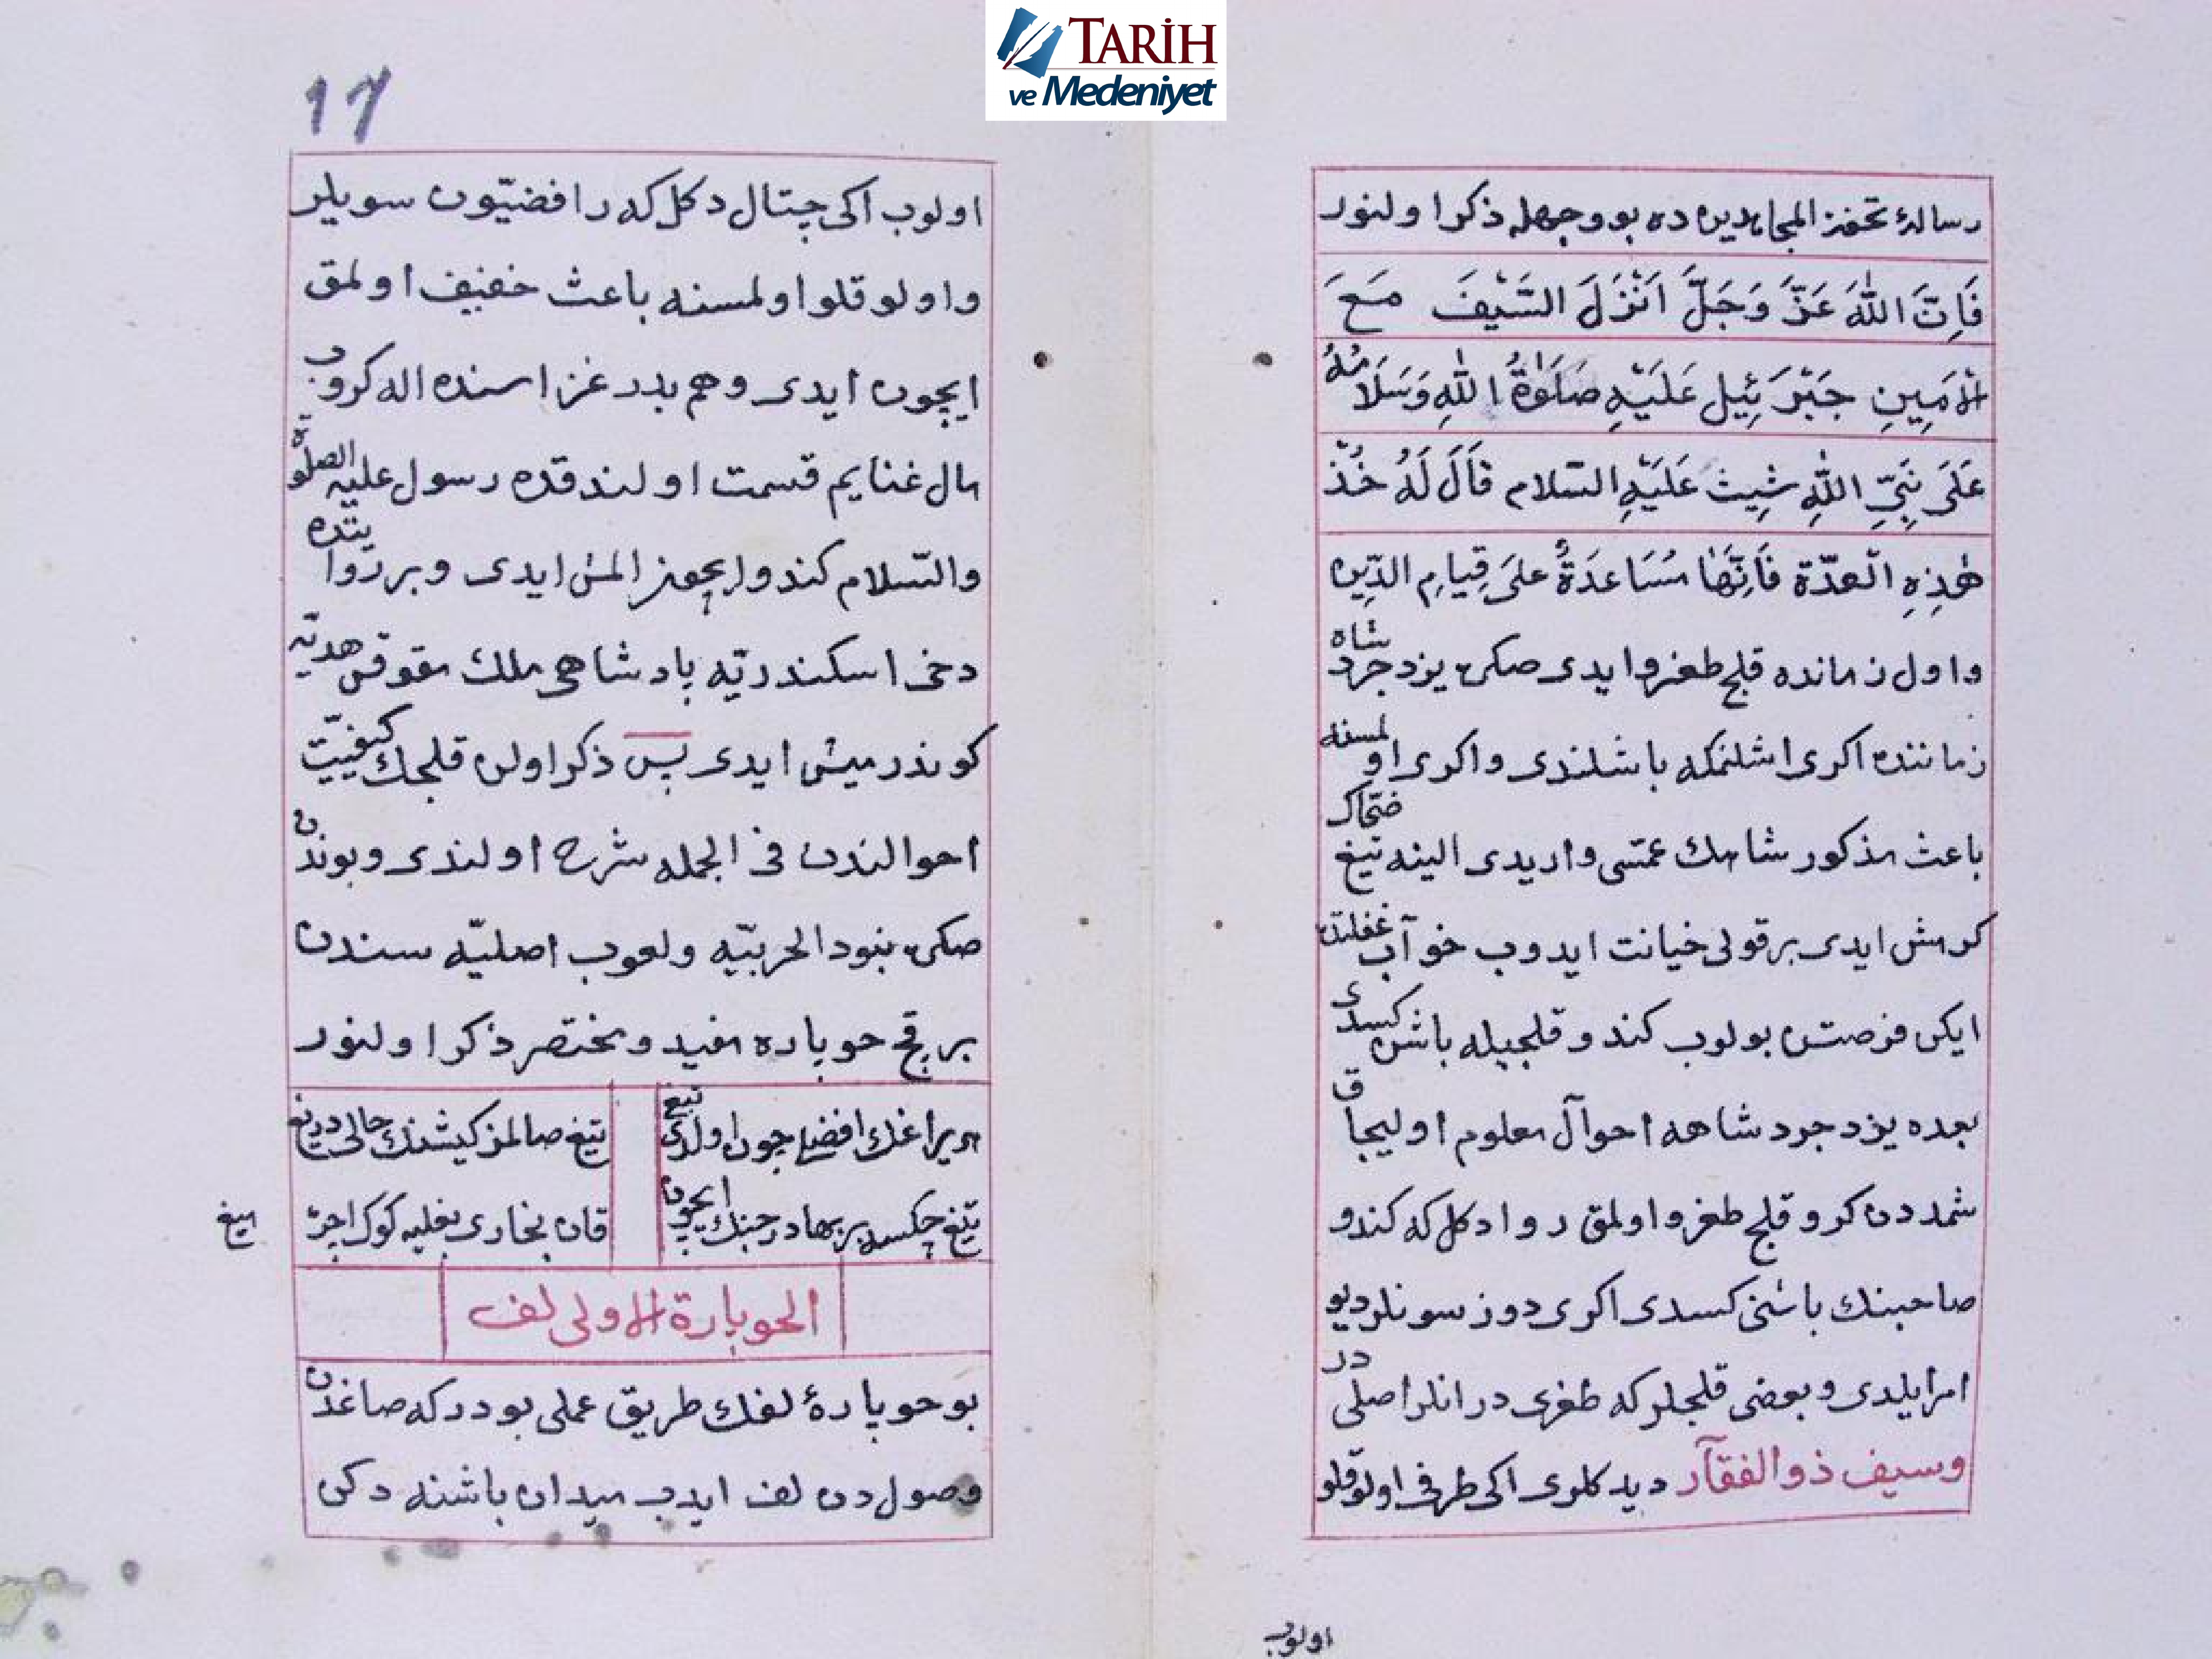 TARİH
ve Medeniyet
رسالۀ تحفة المجاهدین ده بو وجهله ذکر اولنور
فَاِنَّ اللّٰهَ عَزَّ وَجَلَّ اَنْزَلَ السَّيْفَ مَعَ
الْاَمِينِ جَبْرَئِيل عَلَيْهِ صَلَوٰةُ اللّٰهِ وَسَلَامُهُ
عَلَى نَبِيِّ اللّٰهِ شِيث عَلَيْهِ السَّلام قَالَ لَهُ خُذْ
هٰذِهِ الْعدّة فَاِنَّهَا مُسَاعدَةٌ عَلَى قِيامِ الدِّين
و اول زمانده قلج طغرو ایدی صکره یزدجرد شاه
زماننده اکری اشلنمکه باشلندی و اکری اولمسنه
باعث مذکور شاهك عمتسی وار یدی الینه تیغ ضحّاك
کرمش ایدی بر قولی خیانت ایدوب خوآب غفلتده
ایکن فرصتن بولوب کندو قلجیله باشن کسدی
بعده یزدجرد شاهه احوآل معلوم اولیجاق
شمددن کرو قلج طغرو اولمق روا دکل که کندو
صاحبنك باشنی کسدی اکری دوزسونلر دیو
امر ایلدی و بعضی قلجلر که طغری در انلر اصلی در
و سیف ذو الفقآر دیدکلری اکی طرفی اولوقلو
اولوب
17
اولوب اکی چتال دکل که رافضیّون سویلر
و اولوقلو اولمسنه باعث خفیف اولمق
ایچون ایدی و هم بدر غزاسنده اله کروب
مال غنایم قسمت اولندقده رسول علیه الصلوة
والسّلام کندولر ایچون المش ایدی و بر روایتده
دخی اسکندریّه پادشاهی ملك مقوقس هدیّه
کوندرمیش ایدی پس ذکر اولن قلجك کیفیّت
احوالندن فی الجمله شرح اولندی و بوندن
صکره بنود الحربیّه و لعوب اصلیّه سندن
بر قچ حوباره مفید و مختصر ذکر اولنور
هر یراغك افضلی چون اولدی تیغ تیغ صالمز کیشنك حالی دریغ
تیغ چکسه بر بهادر جنك ایچون قان بخاری بغلیه کوك اجره
میغ
الحوبارة الاولی لف
بو حوبارۀ لفك طریق عملی بودر که صاغدن
و صولدن لف ایدب میدان باشنه دکن